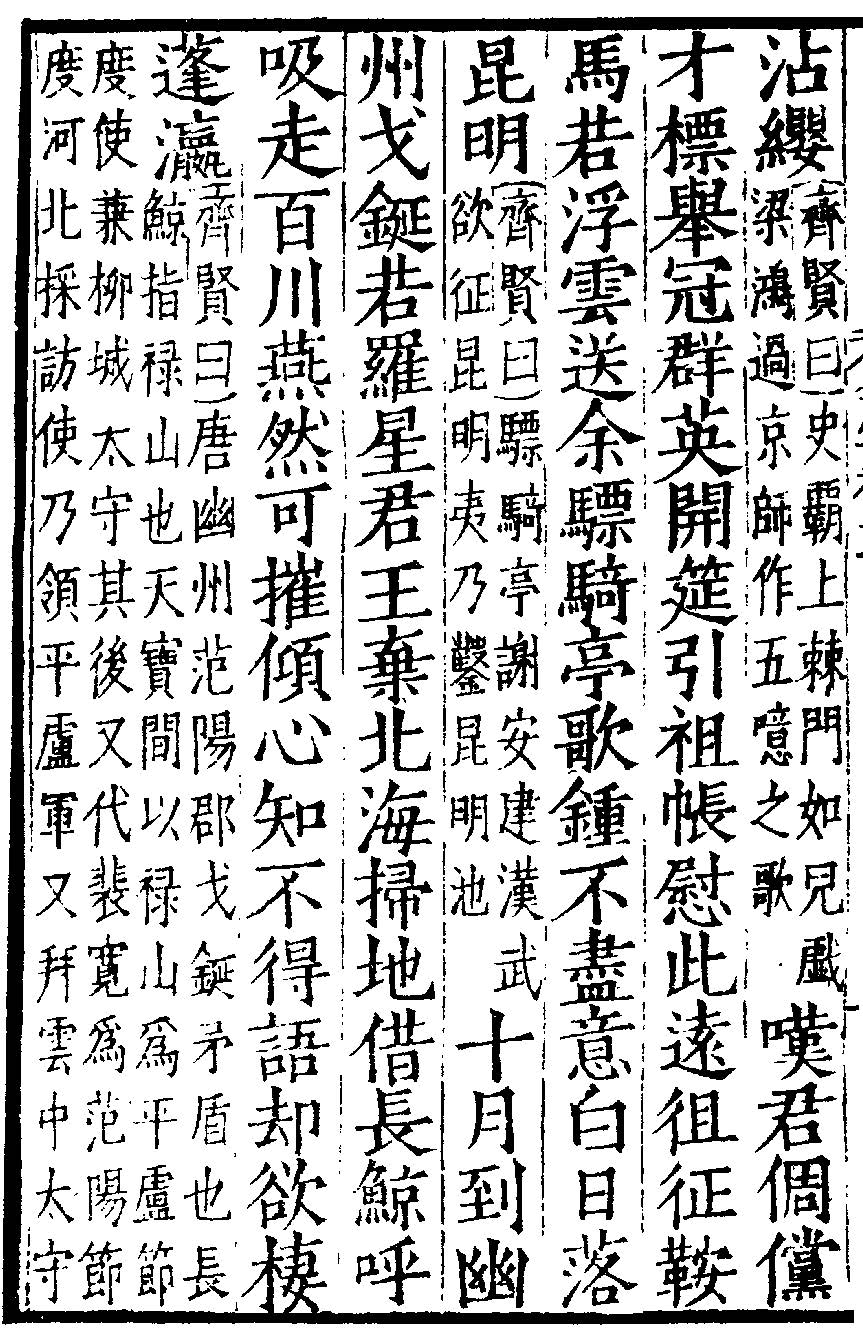 沾纓齊賢曰史霸上棘門如兒戲梁鴻過京師作五噫之歌嘆君倜儻
才標舉冠群英開筵引祖帳慰此遠徂征鞍
馬若浮雲送余驃騎亭歌鍾不盡意白日落
昆明齊賢曰驃騎亭謝安建漢武欲征昆明夷乃鑿昆明池十月到幽
州戈鋋若羅星君王棄北海掃地借長鯨呼
吸走百川燕然可摧傾心知不得語却欲棲
蓬瀛齊賢曰唐幽州范陽郡戈鋋矛盾也長鯨指禄山也天寶間以禄山為平盧節
度使兼柳城太守其後又代裴寬為范陽節
度河北採訪使乃領平盧軍又拜雲中太守